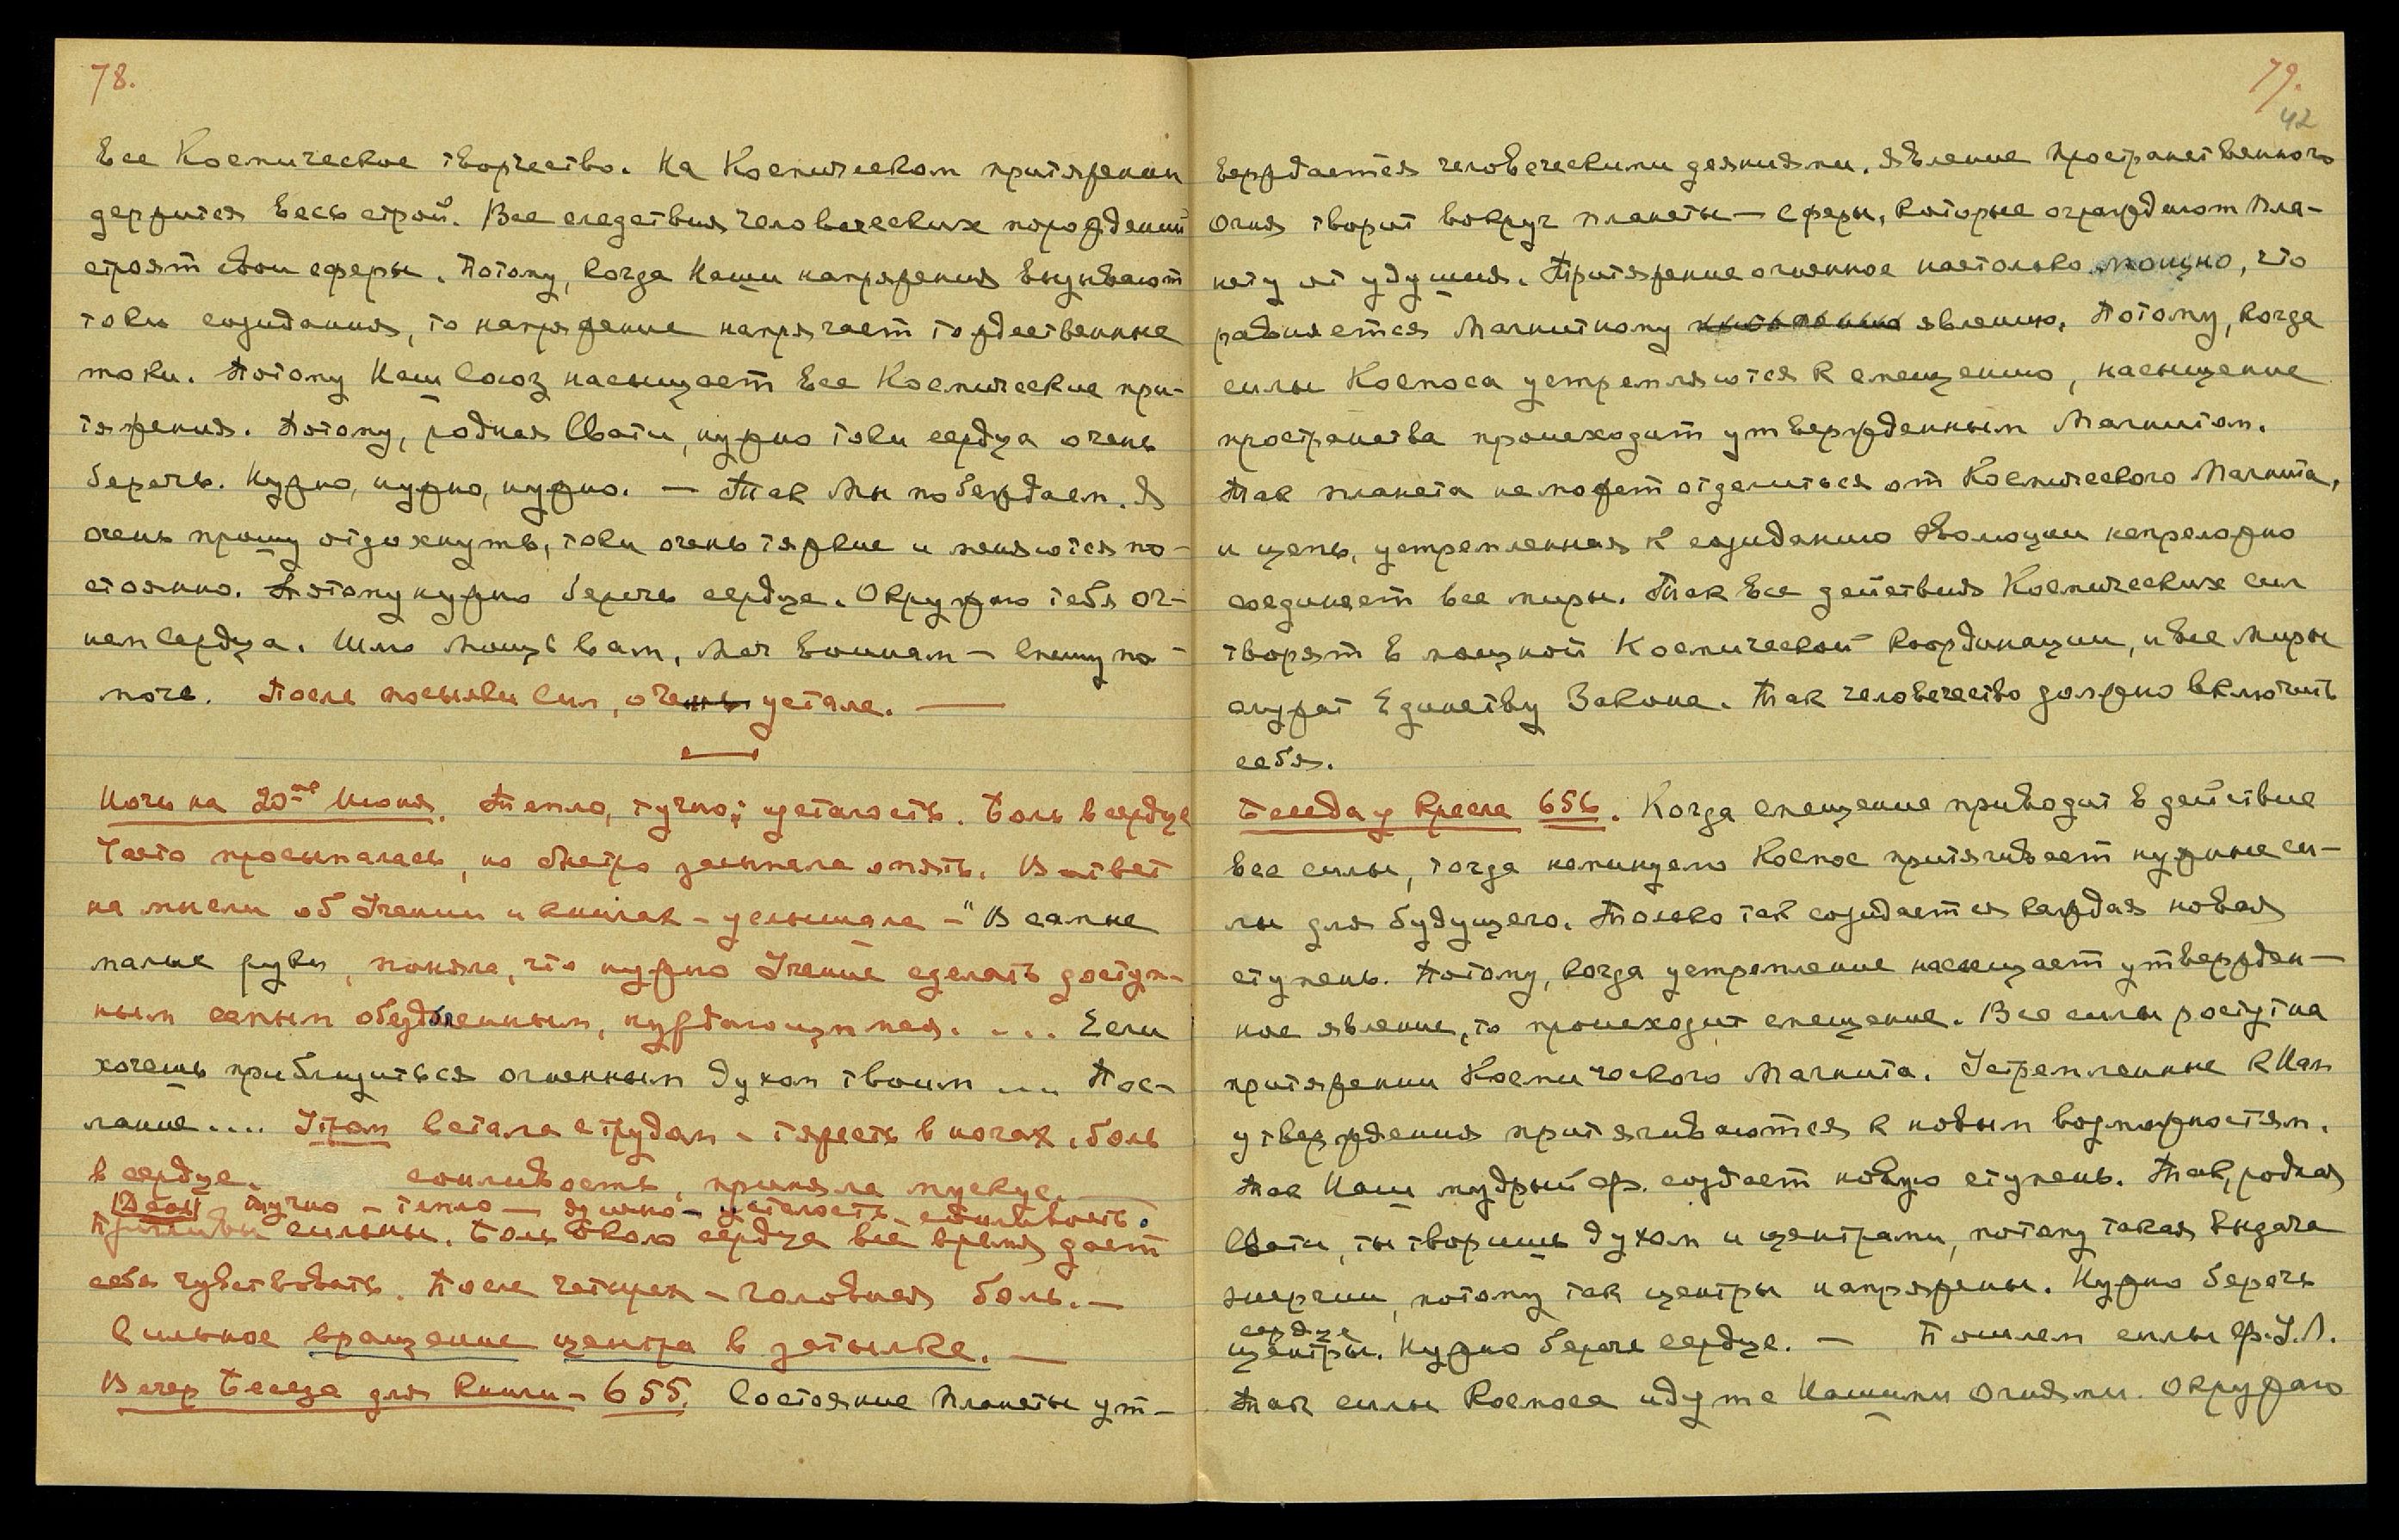 78.
Все Космическое творчество. На Космическом притяжении
держится весь строй. Все следствия человеческих порождений
строят свои сферы. Потому, когда Наши напряжения вызывают
токи созидания, то напряжение напрягает тождественные
токи. Потому Наш Союз насыщает все Космические при-
тяжения. Потому, родная Свати, нужно токи сердца очень
беречь. Нужно, нужно, нужно. — Так Мы побеждаем. Я
очень прошу отдохнуть, токи очень тяжкие и меняются по-
стоянно. Потому нужно беречь сердце. Окружаю тебя ог-
нем Сердца. Шлю мощь вам, меч воинам – Спешу по-
мочь. После посылки сил, очень устала. —
Ночь на 20ое Июня. Тепло, тучно; усталость. Боль в сердце
Часто просыпалась, но быстро засыпала опять. В ответ
на мысли об Учении и книгах – услышала – "В самые
малые руки, поняла, что нужно Учение сделать доступ-
ным самым обездоленным, нуждающимся. ... Если
хочешь приблизиться огненным духом твоим ... Пос-
лание .... Утром встала с трудом – тяжесть в ногах, боль
в сердце. сонливость, приняла мускус. —
Днем тучно – тепло – душно – усталость, сонливость.
Приливы сильны. Боль около сердца все время дает
себя чувствовать. После четырех – головная боль. —
Сильное вращение центра в затылке. —
Вечер Беседа для Книги – 655. Состояние планеты ут-
79.
42
верждается человеческими деяниями. Явление пространственного
Огня творит вокруг планеты – сферы, которые ограждают пла-
нету от удушия. Притяжение огненное настолько мощно, что
равняется Магнитному явлению. Потому, когда
силы Космоса устремляются к смещению, насыщение
пространства происходит утвержденным Магнитом.
Так планета не может отделиться от Космического Магнита,
и цепь, устремленная к созиданию эволюции непреложно
соединяет все миры. Так все действия Космических сил
творят в мощной Космической координации, и все миры
служат Единству Закона. Так человечество должно включить
себя.
Беседа у Кресла 656. Когда смещение приводит в действие
все силы, тогда неминуемо Космос притягивает нужные си-
лы для будущего. Только так созидается каждая новая
ступень. Потому, когда устремление насыщает утвержден-
ное явление, то происходит смещение. Все силы растут на
притяжении Космического Магнита. Устремленные к Нам
утверждения притягиваются к новым возможностям.
Так Наш мудрый Ф. создает новую ступень. Так, родная
Свати, ты творишь духом и центрами, потому такая выдача
энергии, потому так центры напряжены. Нужно беречь
сердце
центры. Нужно беречь сердце. — Пошлем силы Ф.У.Л.
Так силы Космоса идут с Нашими Огнями. Окружаю